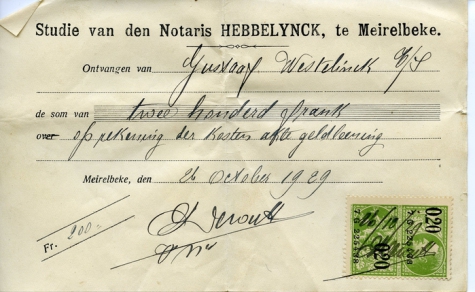 Studie van den Notaris HEBBELYNCK, te Meirelbeke.
Ontvangen van Gustaaf Westelinck
de som van twee honderd frank
over op rekening der kosten akte geldleening
Meirelbeke, den 26 October 1929
Fr. 200.-
26/10
020
020